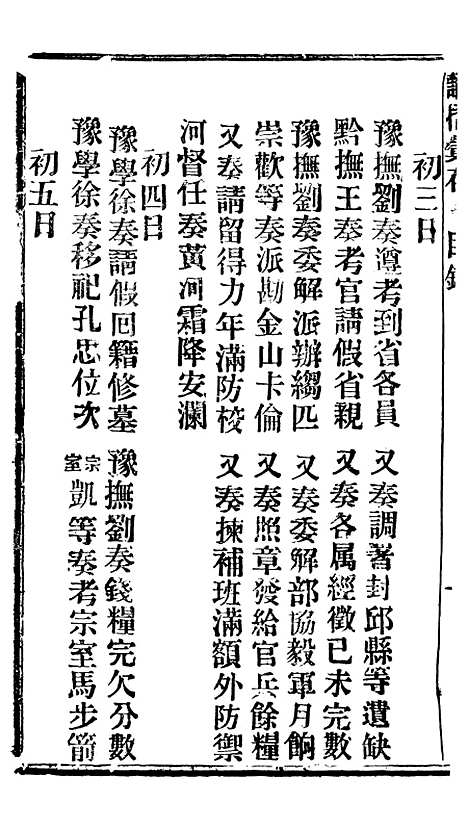 諭摺彙存 目錄
初三日
豫撫劉奏遵考到省各員 又奏調署封邱縣等遺缺
黔撫王奏考官請假省親 又奏各属經徵已未完數
豫撫劉奏委解派辦縐匹 又奏委解部協毅軍月餉
崇歡等奏派勘金山卡倫 又奏照章發給官兵餘糧
又奏請留得力年滿防校 又奏揀補班滿額外防禦
河督任奏黃河霜降安瀾
初四日
豫學徐奏請假回籍修墓 豫撫劉奏錢糧完欠分數
豫學徐奏移祀孔忠位次 宗室凱等奏考宗室馬步箭
初五日